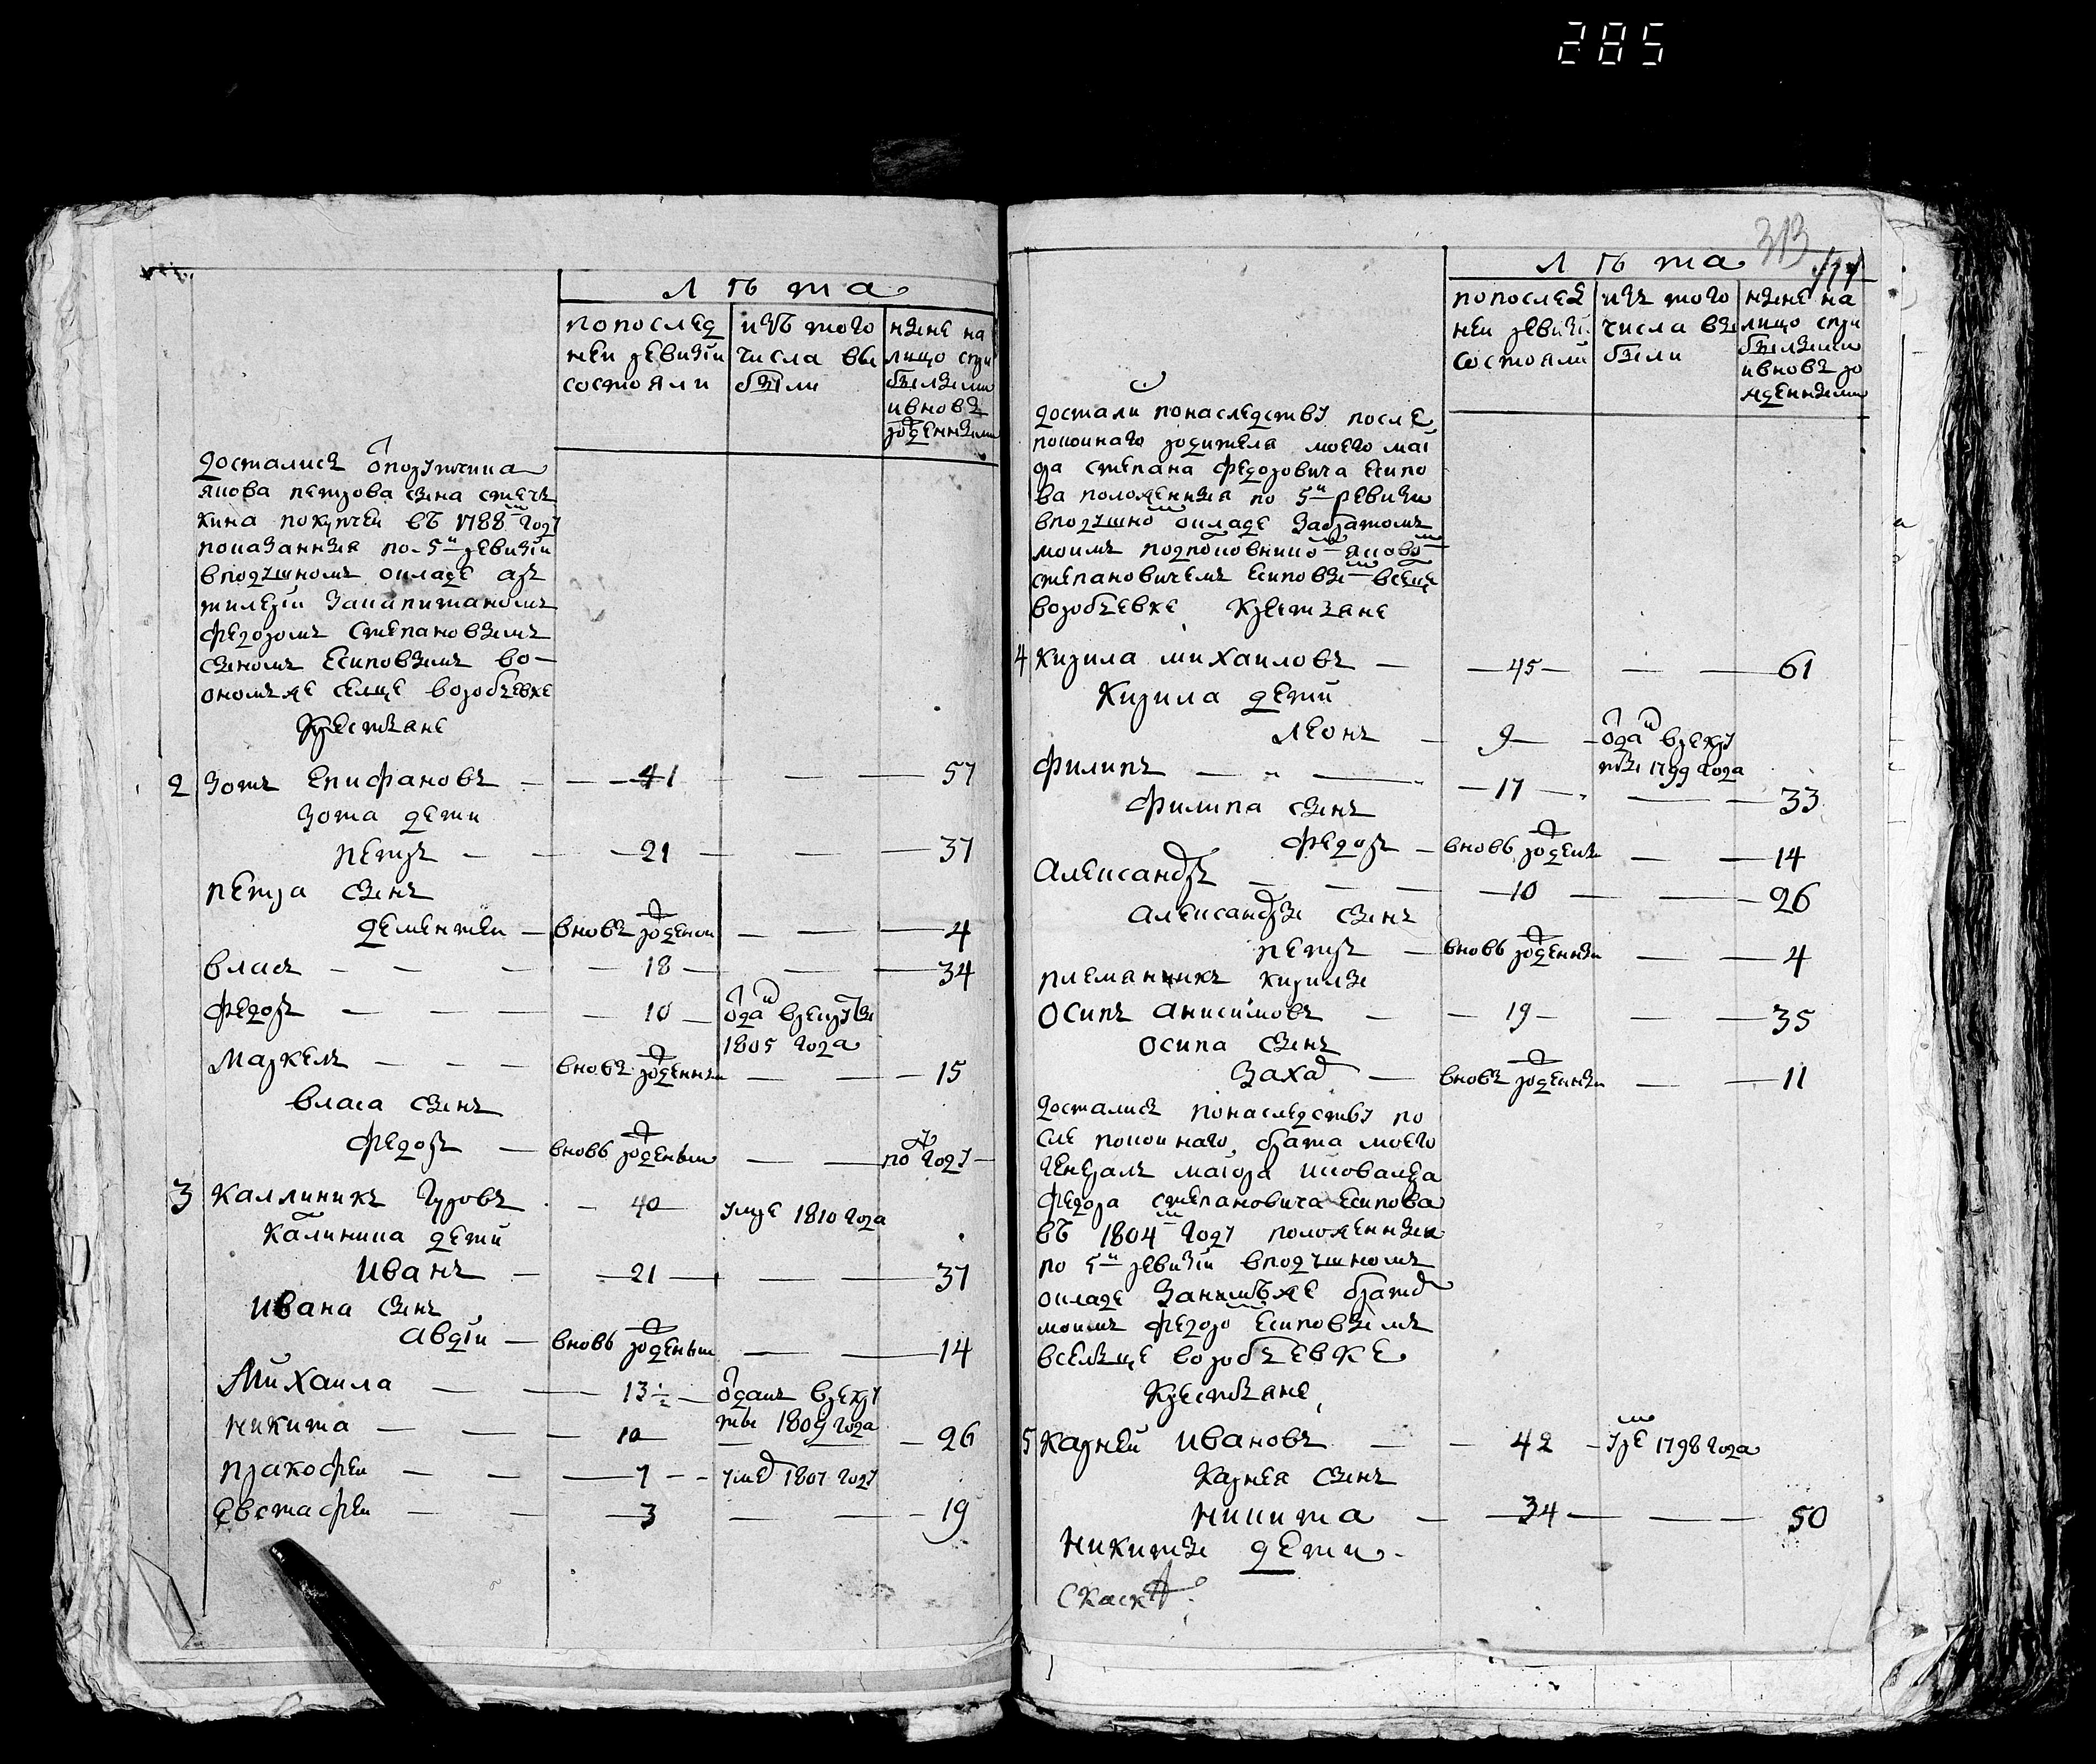 285
Лѣта
по послед
ней ревизiи
состояли
изъ того
числа вы
были
ныне на
лицо спри
былыми
ивновь
рожденными
достались от порутчика
якова петрова сына
покупчеи въ 1788м году
показанныя по 5й ревизiи
вподушномъ окладе ар
тилерiи закапитаномъ
федоромъ степановымъ
сыномъ есиповымъ во
ономъ же селце воробьевке
Крестьяне
2 Зотъ Епифановъ — 41 — — 57
Зота дети
петръ — 21 — — 37
петра сынъ
дементеи — вновь рожденои — — 4
власъ — 18 — — 34
федоръ — 10 — отдан врекруты
1805 года
маркелъ — вновь рожденныи — — 15
власа сынъ
федоръ — вновь рожденыи — — по году
3 каллиникъ гуровъ — 40 умре 1810 года
калиника дети
иванъ — 21 — — 37
ивана сынъ
авдiи — вновь рожденыи — — 14
михаила — 13½ — отданъ врекру
ты 1809 года
никита — 10 — — 26
пракофеи — 7 — умер 1807 году
евстафеи — 3 — — 19
313
Лѣта
по послед
неи ревизi
состояли
изъ того
числа вы
были
ныне на
лицо спри
былыми
ивновь ро
жденными
достали понаследству после
покоинаго родителя моего маi
ора степана федоровича есипо
ва положенныя по 5й ревизи
вподушном окладе забратомъ
моимъ подполковником яковом
степановичемъ есиповым вселце
воробьевке крестьяне
4 кирила михаиловъ — 45 — — 61
Кирила дети
леонъ — 9 — отдан врекру
ты 1799 года
филипъ — 17 — — 33
филипа сынъ
федоръ — вновь рожденъ — — 14
александръ — 10 — — 26
александры сынъ
петръ — вновь рожденныи — — 4
племянникъ кирилы
осипъ анисимовъ — 19 — — 35
осипа сынъ
захар — вновь рожденныи — — 11
достались понаследству по
сле покоинаго брата моего
генералъ маiора икавалера
федора степановича есипова
въ 1804м году положенныя
по 5й ревизiи вподушномъ
окладе занимъже братом
моимъ федоро есиповымъ
вселъце воробьевке
Крестьяне
5 карнеи ивановъ — 42 — умре 1798 года
карнея сынъ
никита — 34 — — 50
никиты дети
Скаска